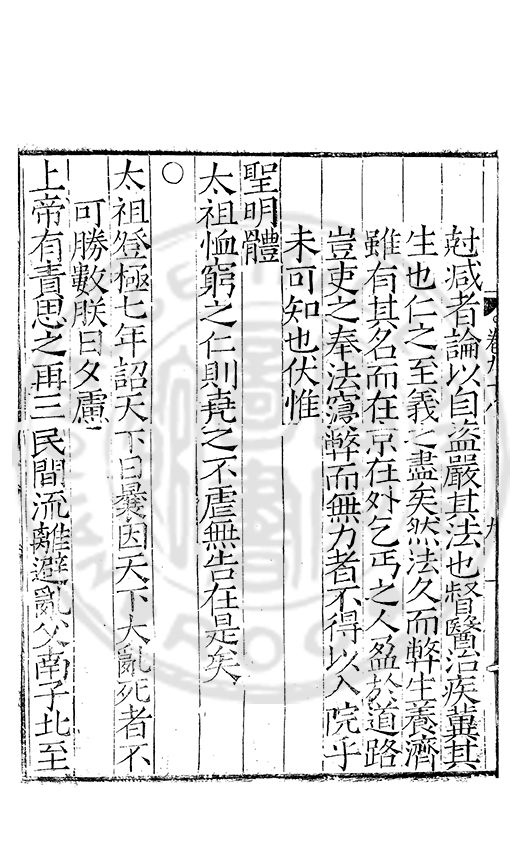 尅减者論以自盜嚴其法也督醫治疾冀其
生也仁之至義之盡矣然法久而弊生養濟
雖有其名而在京在外乞丐之人盈於道路
豈吏之奉法寖弊而無力者不得以入院乎
未可知也伏惟
聖明體
太祖恤窮之仁則堯之不虐無告在是矣
○
太祖登極七年詔天下曰曩因天下大亂死者不
可勝數朕日夕慮
上帝有責思之再三民間流離避亂父南子北至
卷九十八
九